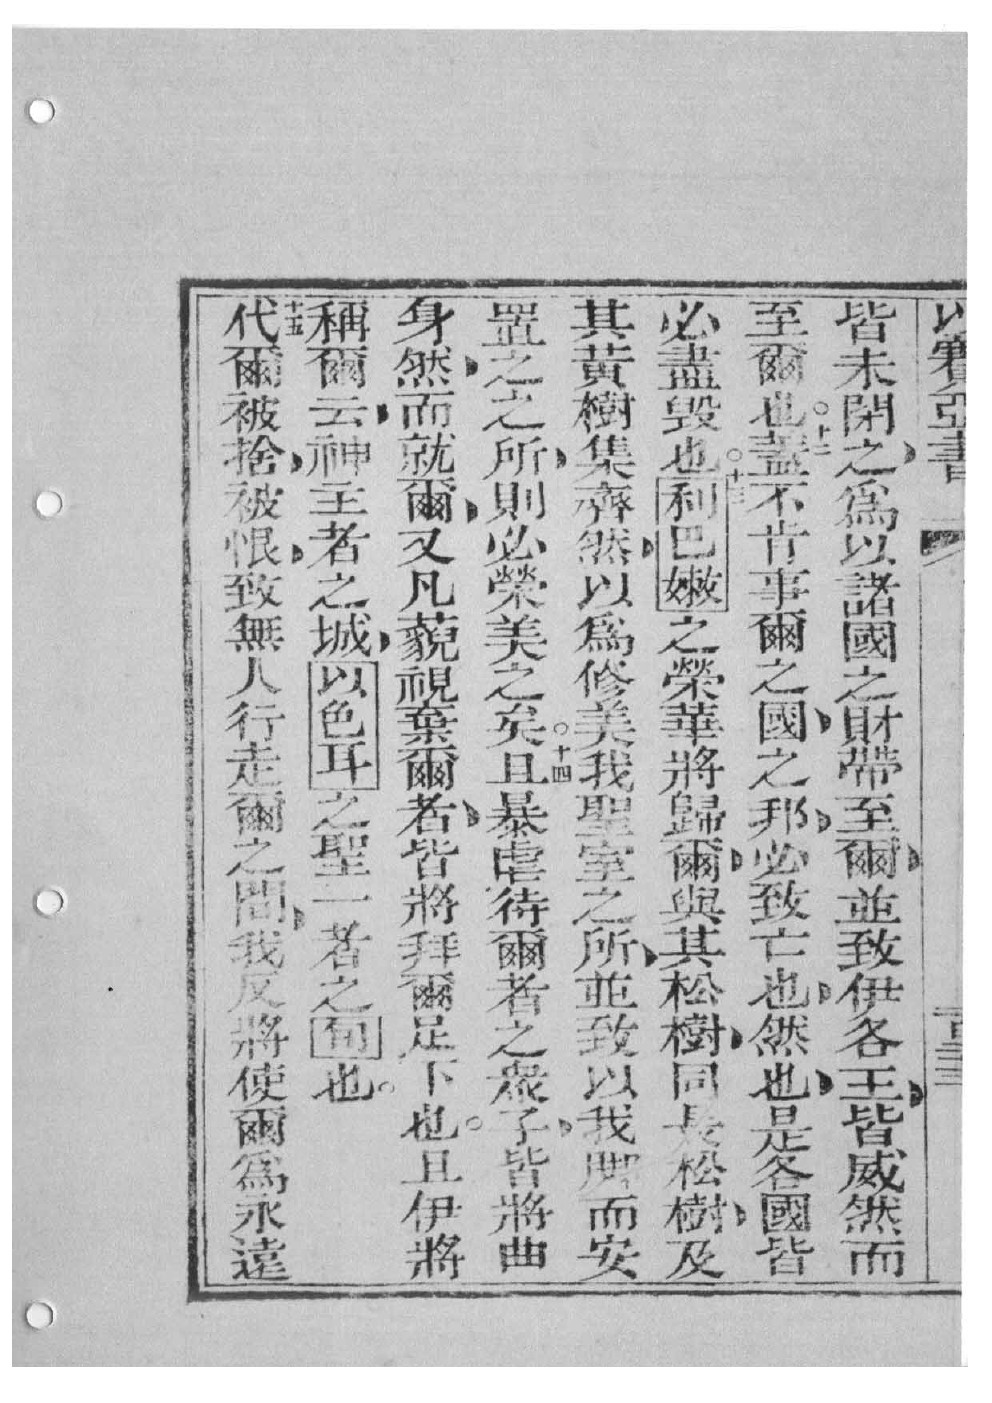 以賽亞書
皆未閉之爲以諸國之財帶至爾並致伊各王皆威然而
至爾也。十二蓋不肯事爾之國之邦必致亡也然也是各國皆
必盡毀也。十三利巴嫩之榮華將歸爾與其松樹同長松樹及
其黃樹集齊然以爲修美我聖室之所並致以我脚而安
置之之所則必榮美之矣。十四且暴虐待爾者之衆子皆將曲
身然而就爾又凡藐視棄爾者皆將拜爾足下也。且伊將
稱爾云神主者之城以色耳之聖一者之旬也。
十五代爾被捨被恨致無人行走爾之間我反將使爾爲永遠